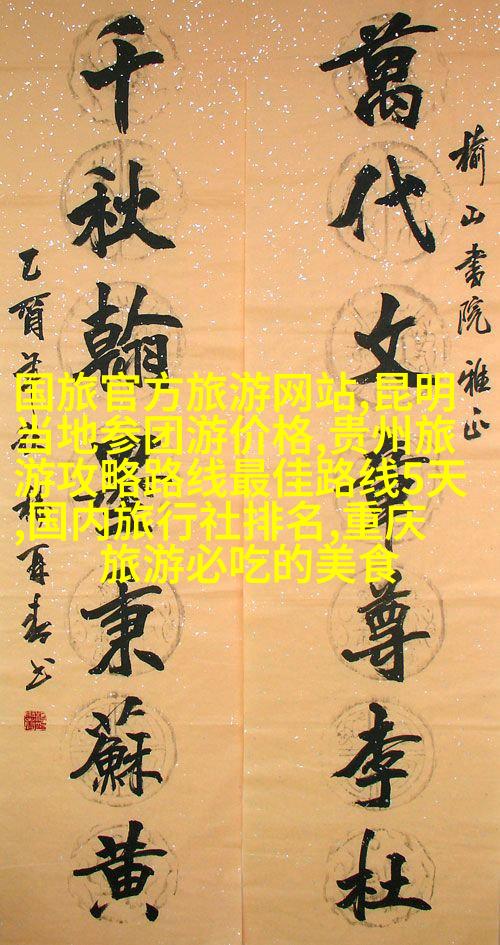 榆山書院雅正
萬代文章尊李杜
千秋翰墨秉蘇黄
乙酉
国旅官方旅游网站,昆明
当地参团游价格,贵州旅
游攻略路线最佳路线5天
,国内旅行社排名,重庆
旅游必吃的美食